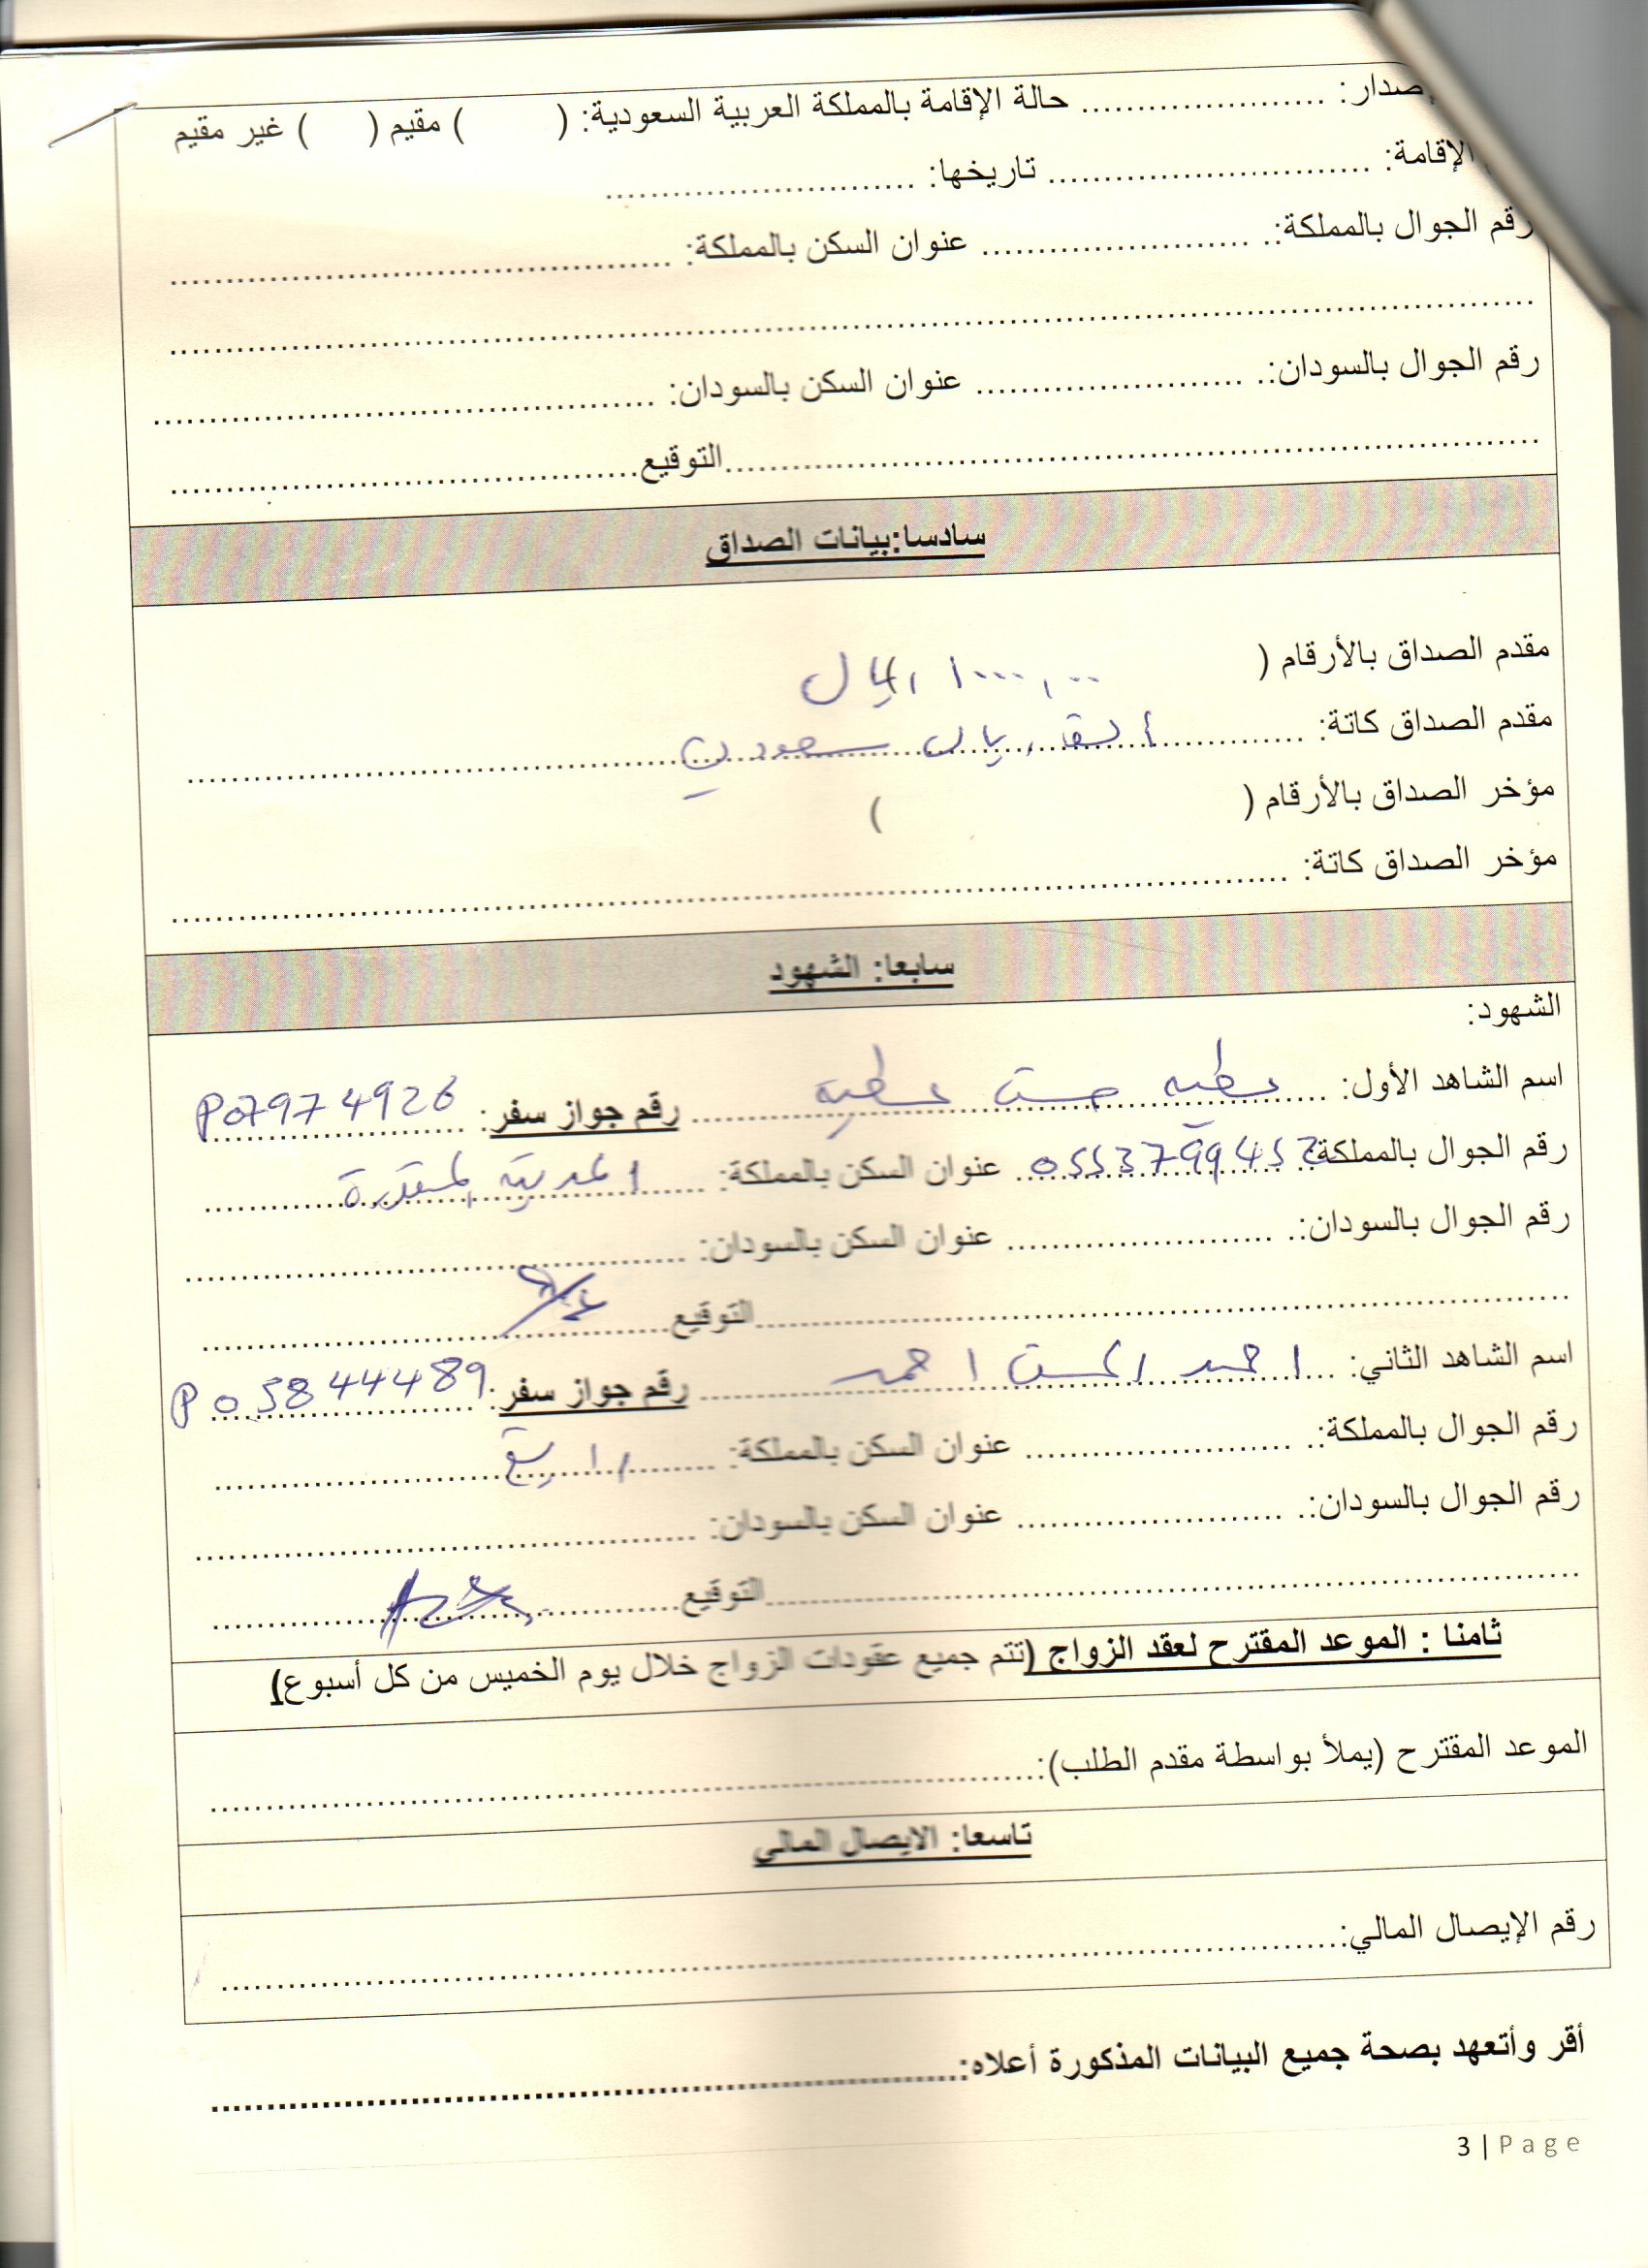 إصدار: ...................... حالة الإقامة بالمملكة العربية السعودية: (        ) مقيم (     ) غير مقيم
الإقامة: ............................. تاريخها: ............................
رقم الجوال بالمملكة:. ........................ عنوان السكن بالمملكة: .............................................
..........................................................................................................................
رقم الجوال بالسودان:. ........................ عنوان السكن بالسودان: .............................................
.........................................................................التوقيع..........................................
سادسا:بيانات الصداق
مقدم الصداق بالأرقام ( ١٠٠٠,٠٠ ريال
مقدم الصداق كاتة: الف ريال سعودي
مؤخر الصداق بالأرقام (                    )
مؤخر الصداق كاتة: ....................................................................................................
سابعا: الشهود
الشهود:
اسم الشاهد الأول: عطيه حسن عطيه رقم جواز سفر: P07974926
رقم الجوال بالمملكة:. 0553799452 عنوان السكن بالمملكة: المدينة المنورة
رقم الجوال بالسودان:. ........................ عنوان السكن بالسودان: .............................................
.........................................................................التوقيع..........................................
اسم الشاهد الثاني: احمد الحسن احمد رقم جواز سفر: P05844489
رقم الجوال بالمملكة:. ........................ عنوان السكن بالمملكة: رابغ
رقم الجوال بالسودان:. ........................ عنوان السكن بالسودان: .............................................
.........................................................................التوقيع..........................................
ثامنا : الموعد المقترح لعقد الزواج (تتم جميع عقودات الزواج خلال يوم الخميس من كل أسبوع)
الموعد المقترح (يملأ بواسطة مقدم الطلب):..........................................................................
تاسعا: الايصال المالي
رقم الإيصال المالي:....................................................................................................
أقر وأتعهد بصحة جميع البيانات المذكورة أعلاه:......................................................................
3 | Page